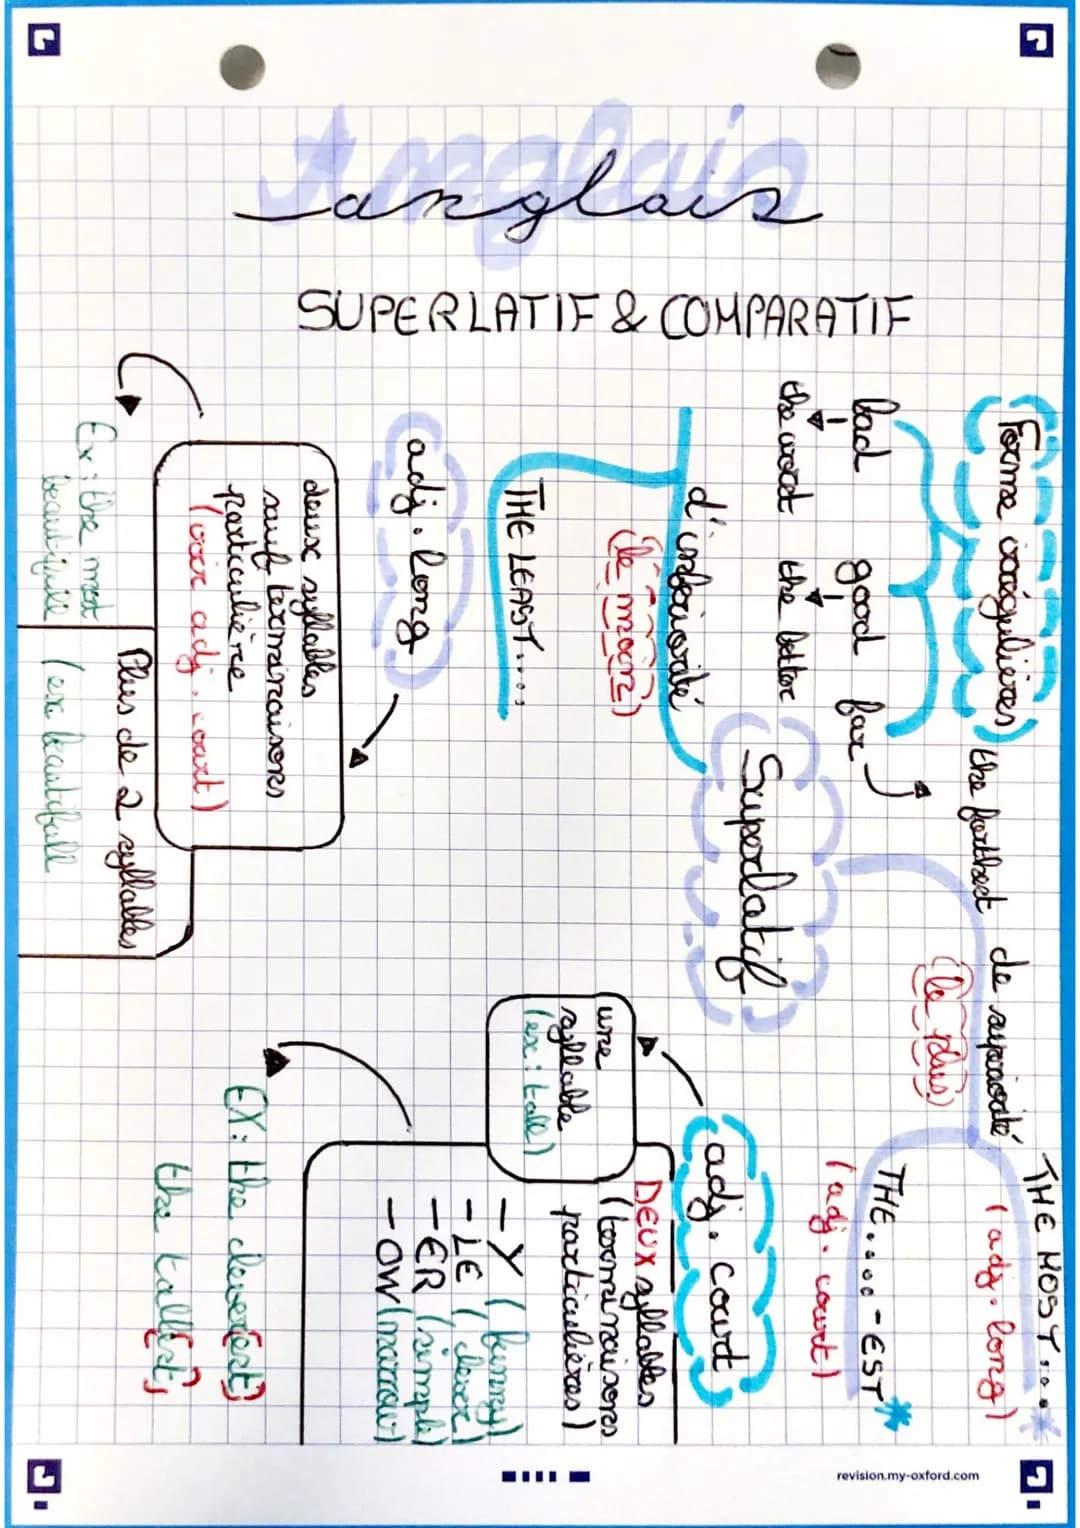 Anglais
anglais
SUPERLATIF & COMPARATIF
Forme irrégulières
bad good far
the worst the better
the farthest
d'inferiorité
(le moins)
THE LEAST....
Superlatif
de superiorité
(le plus)
THE MOST....*
(adj. long)
THE.....-EST*
(adj. court)
adj. long
deux syllables
sauf terminaisons
particulière
(voir adj. court)
Ex: the most
beautifull
Plus de 2 syllables
(ex beautifull
adj. court
une
syllable
(ex: tall)
DEUX syllables
(terminaisons
particulières)
-Y (funny)
-LE (clever)
-ER (simple)
-OW (narrow)
EX: the clever(est)
the tall(est)
revision.my-oxford.com